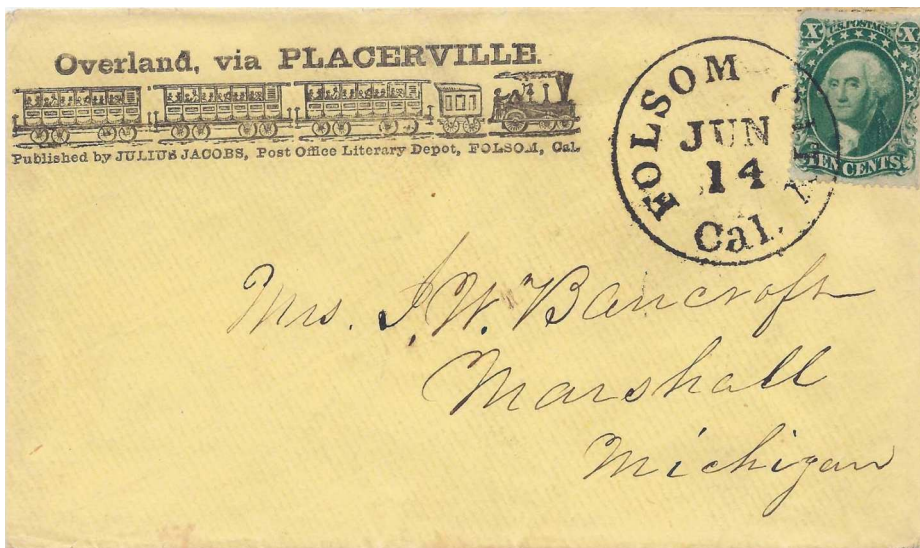 Overland, via PLACERVILLE.
Published by JULIUS JACOBS, Post Office Literary Depot, FOLSOM, Cal.
FOLSOM
JUN
14
Cal.
X U.S. POSTAGE X
TEN CENTS
Mrs. J. W. Bancroft
Marshall
Michigan